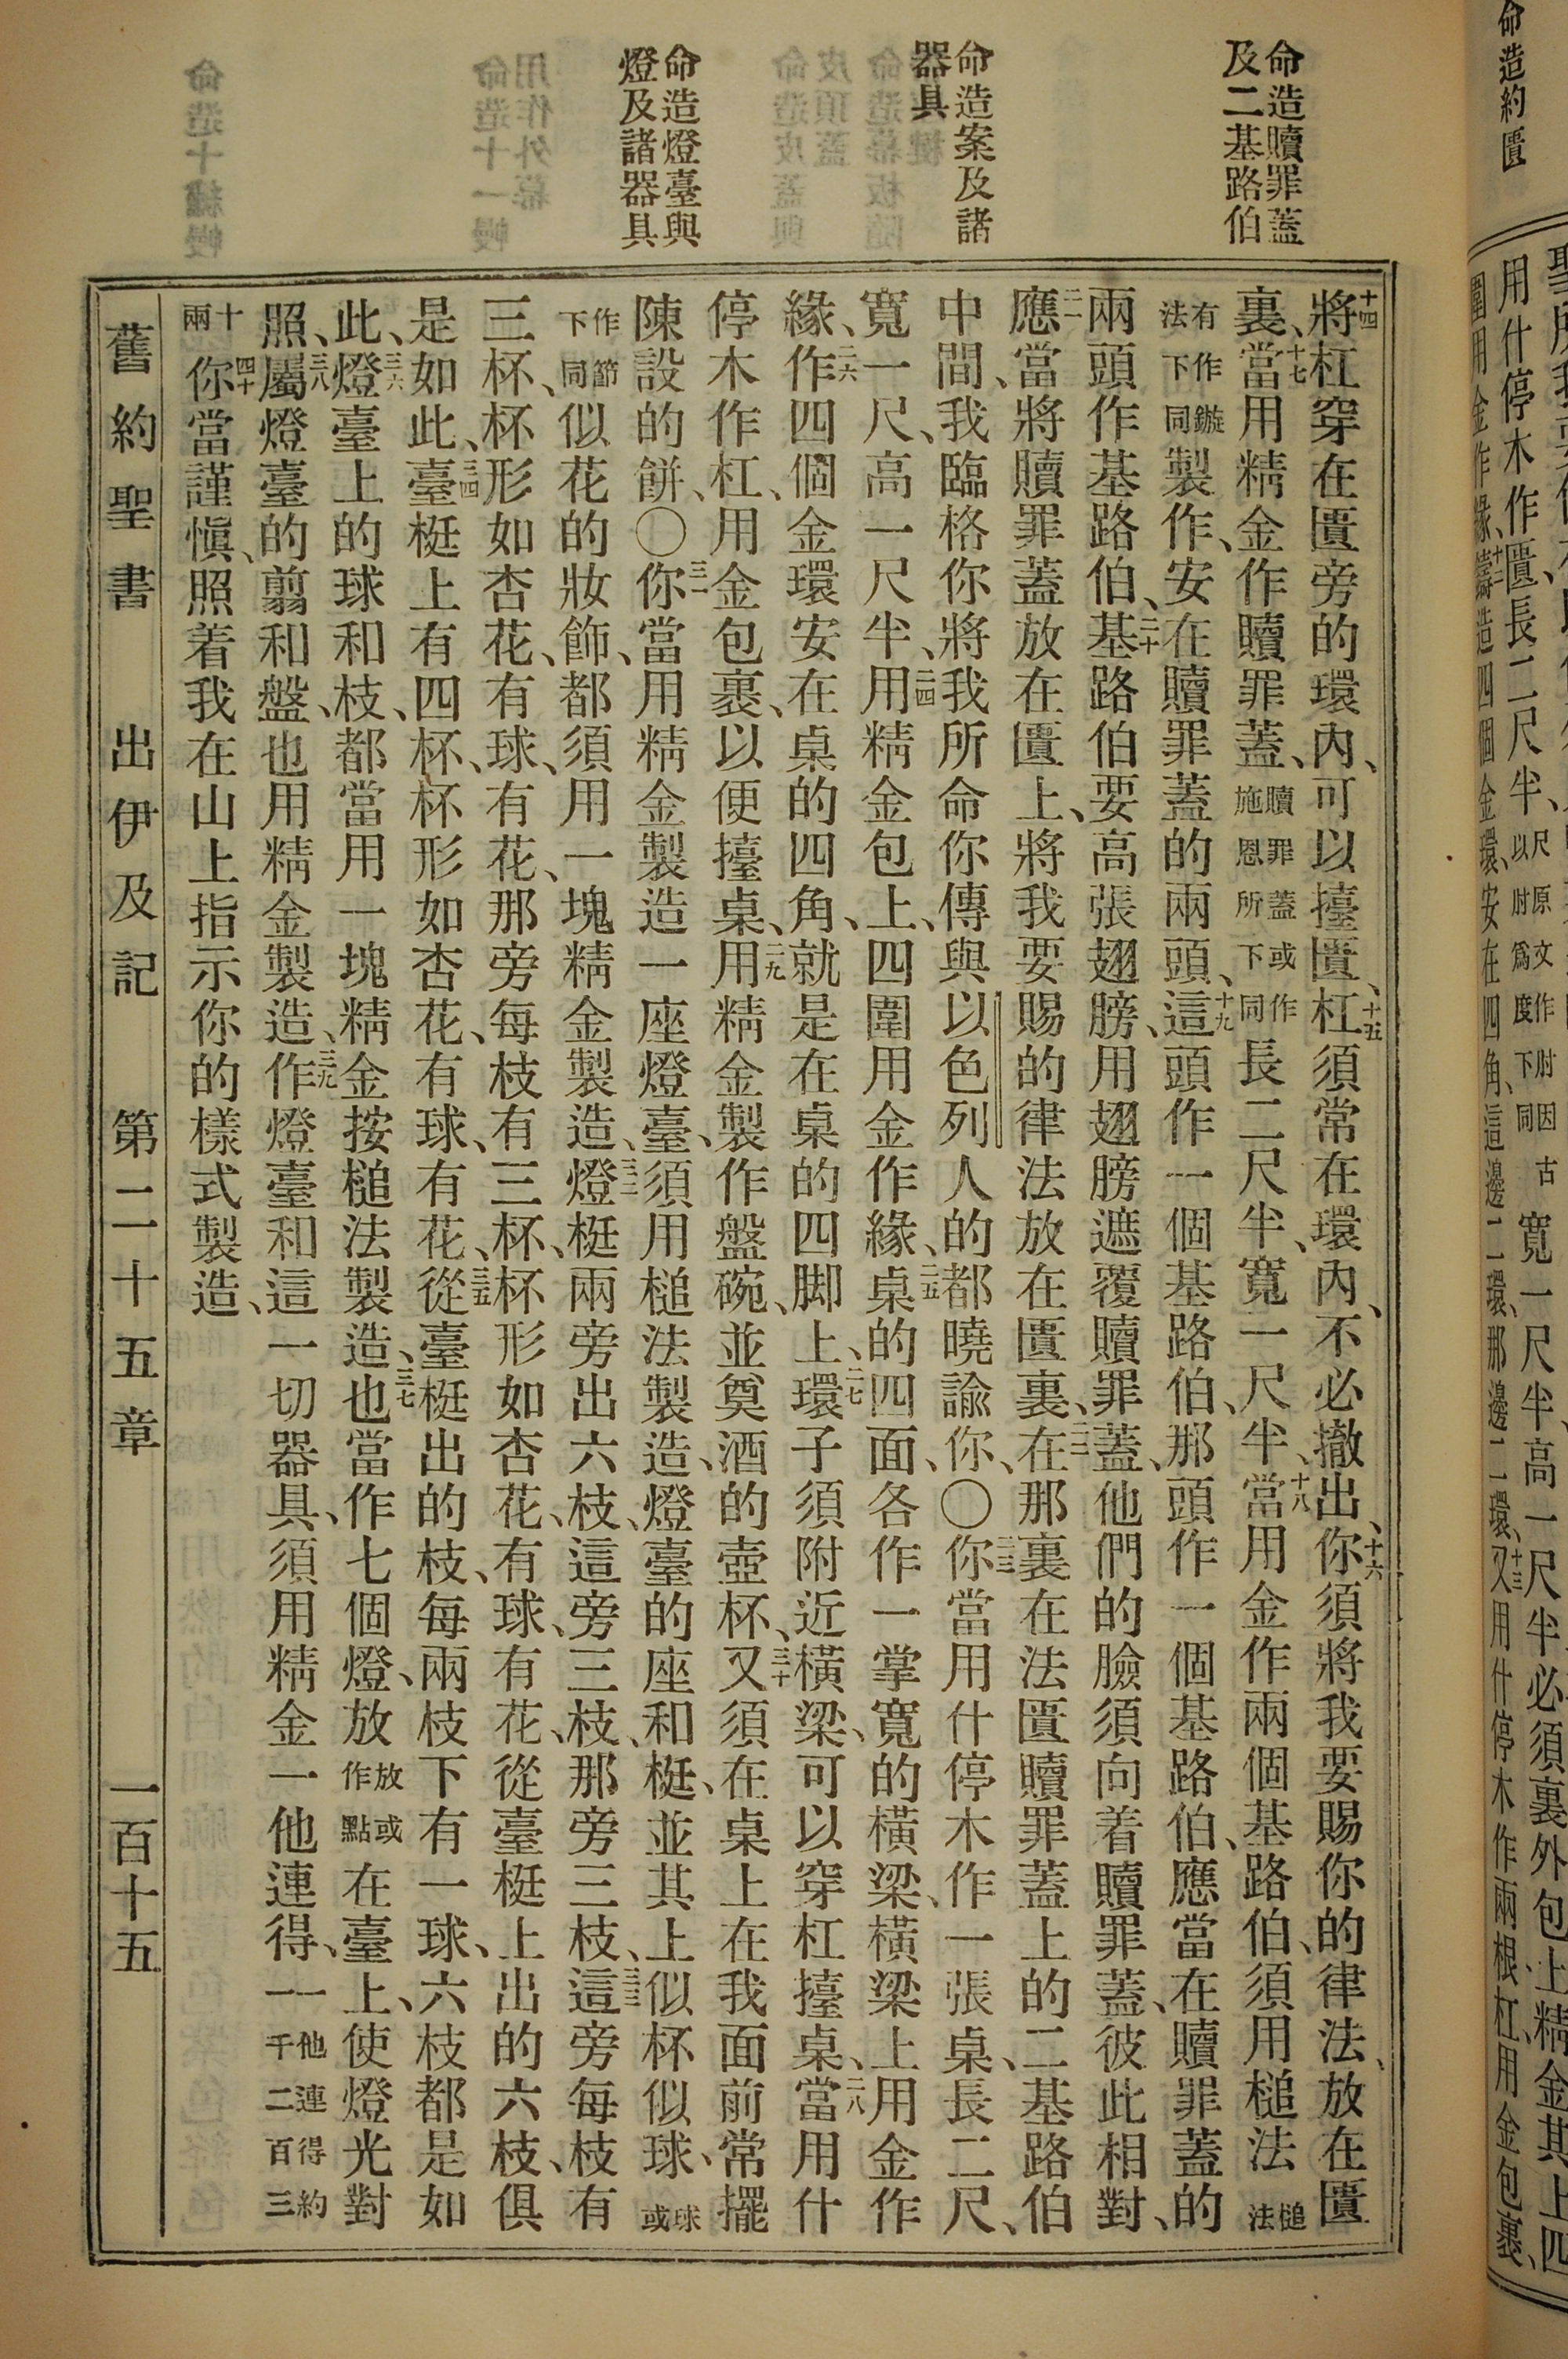 命造約匱
命造贖罪蓋
及二基路伯
命造案及諸
器具
命造燈臺與
燈及諸器具
用什停木作匱、長二尺半、尺原文作肘因古以肘爲度下同寬一尺半、高一尺半必須裏外包上精金其上四
圍用金作緣、十二鑄造四個金環、安在四角、這邊二環、那邊二環、十三又用什停木作兩根杠、用金包裹、
十四將杠穿在匱旁的環內、可以擡匱、十五杠須常在環內、不必撤出、十六你須將我要賜你的律法、放在匱
裏、十七當用精金作贖罪蓋、贖罪蓋或作施恩所下同長二尺半、寬一尺半、十八當用金作兩個基路伯、須用槌法槌法
有作鏇法下同製作、安在贖罪蓋的兩頭、十九這頭作一個基路伯、那頭作一個基路伯、應當在贖罪蓋的
兩頭作基路伯、二十基路伯要高張翅膀、用翅膀遮覆贖罪蓋、他們的臉須向着贖罪蓋、彼此相對、
二一應當將贖罪蓋放在匱上、將我要賜的律法放在匱裏、二二在那裏在法匱贖罪蓋上的二基路伯
中間、我臨格你將我所命你傳與以色列人的都曉諭你、〇二三你當用什停木作一張桌、長二尺、
寬一尺、高一尺半、二四用精金包上、四圍用金作緣、二五桌的四面、各作一掌寬的橫梁、橫梁上用金作
緣、二六作四個金環安在桌的四角、就是在桌的四脚上、二七環子須附近橫梁、可以穿杠擡桌、二八當用什
停木作杠、用金包裹、以便擡桌、二九用精金製作盤碗、並奠酒的壺杯、三十又須在桌上在我面前常擺
陳設的餅、〇三一你當用精金製造一座燈臺、須用槌法製造、燈臺的座和梃、並其上似杯似球、球或
作節下同似花的妝飾、都須用一塊精金製造、三二燈梃兩旁出六枝、這旁三枝、那旁三枝、三三這旁每枝有
三杯、杯形如杏花、有球、有花、那旁每枝有三杯、杯形如杏花、有球、有花、從臺梃上出的六枝、俱
是如此、三四臺梃上有四杯、杯形如杏花、有球、有花、三五從臺梃出的枝、每兩枝下有一球、六枝都是如
此、三六燈臺上的球和枝、都當用一塊精金按槌法製造、三七也當作七個燈、放放或作點在臺上、使燈光對
照、三八屬燈臺的翦和盤、也用精金製造、三九作燈臺和這一切器具、須用精金一他連得、一他連得約一千二百三
十兩四十你當謹愼、照着我在山上指示你的樣式製造、
舊約聖書 出伊及記 第二十五章 一百十五